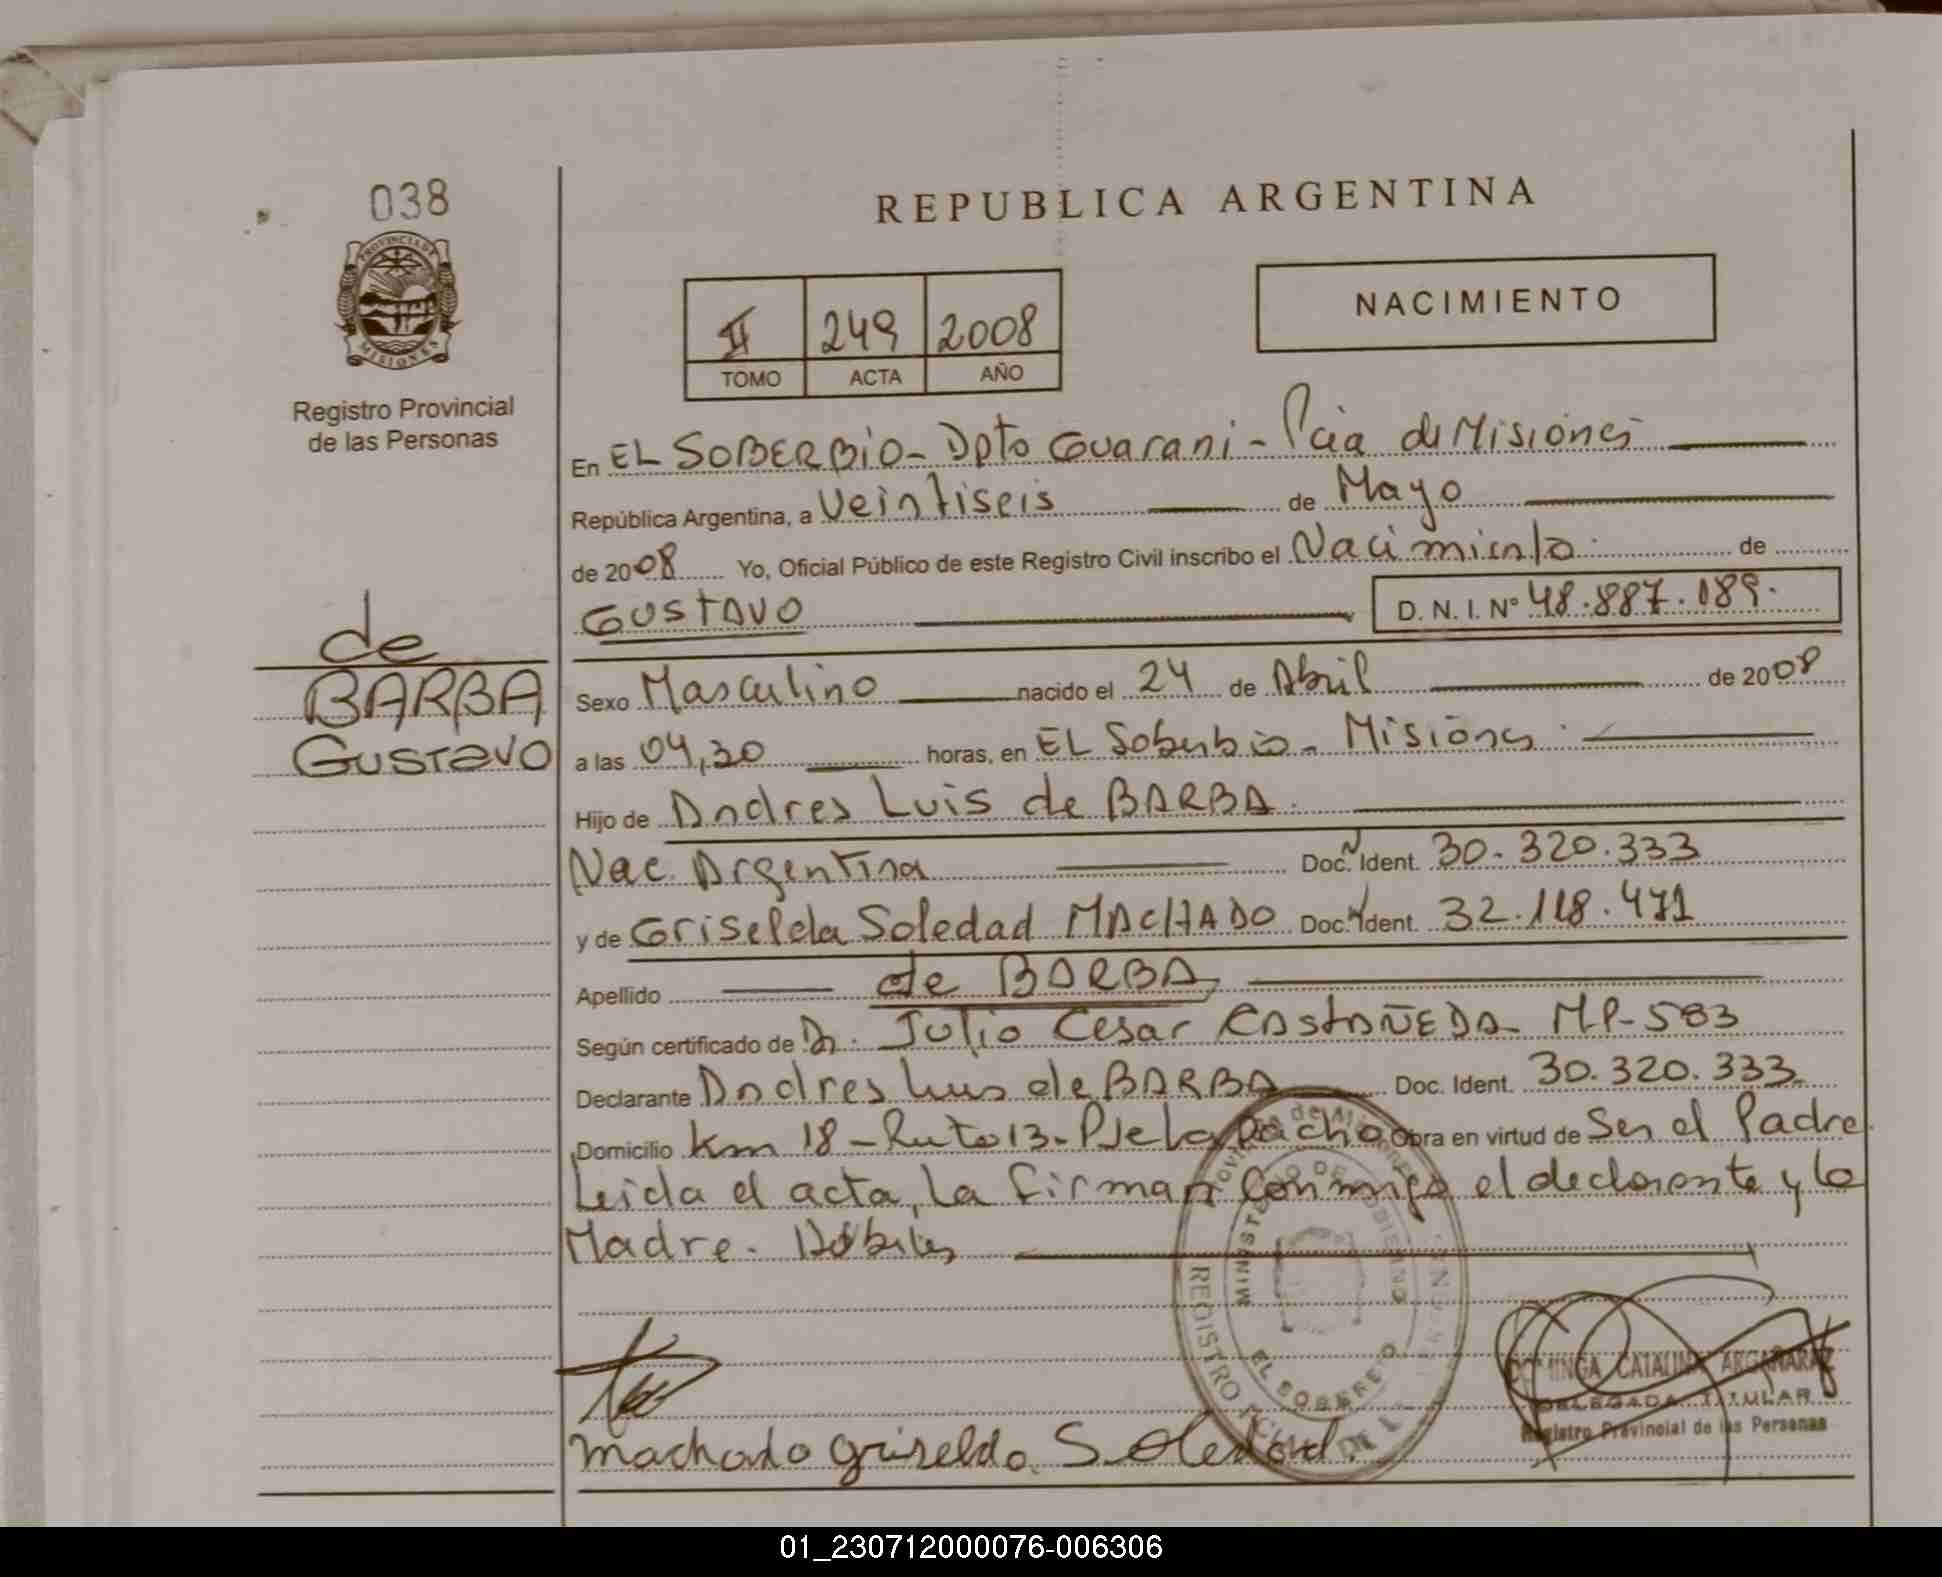 038
REPUBLICA ARGENTINA
PROVINCIA DE
MISIONES
Registro Provincial
de las Personas
II 249 2008
TOMO ACTA AÑO
NACIMIENTO
En EL SOBERBIO - Dpto Guarani - Pcia de Misiones
República Argentina, a Veintiseis de Mayo
de 2008 Yo, Oficial Público de este Registro Civil inscribo el Nacimiento de
GUSTAVO D. N. I. Nº 48.887.189.
de
BARBA
Gustavo
Sexo Masculino nacido el 24 de Abril de 2008
a las 04,30 horas, en EL Soberbio - Misiones
Hijo de Andres Luis de BARBA
Nac. Argentina Doc. N Ident. 30.320.333
y de Griselda Soledad MACHADO Doc. Ident. 32.118.471
Apellido de BARBA
Según certificado de Dr. Julio Cesar CASTAÑEDA - M.P- 583
Declarante Andres Luis de BARBA Doc. Ident. 30.320.333
Domicilio Km 18 - Ruta 13 - Pje Lapacho Obra en virtud de Ser el Padre
Leida el acta, la firman conmigo el declarante y la
Madre.
Provincia de Misiones
MINISTERIO DE GOBIERNO
REGISTRO
EL SOBERBIO
DOMINGA CATALINA ARGAÑARAZ
DELEGADA TITULAR
Registro Provincial de las Personas
Machado Griselda Soledad
01_230712000076-006306